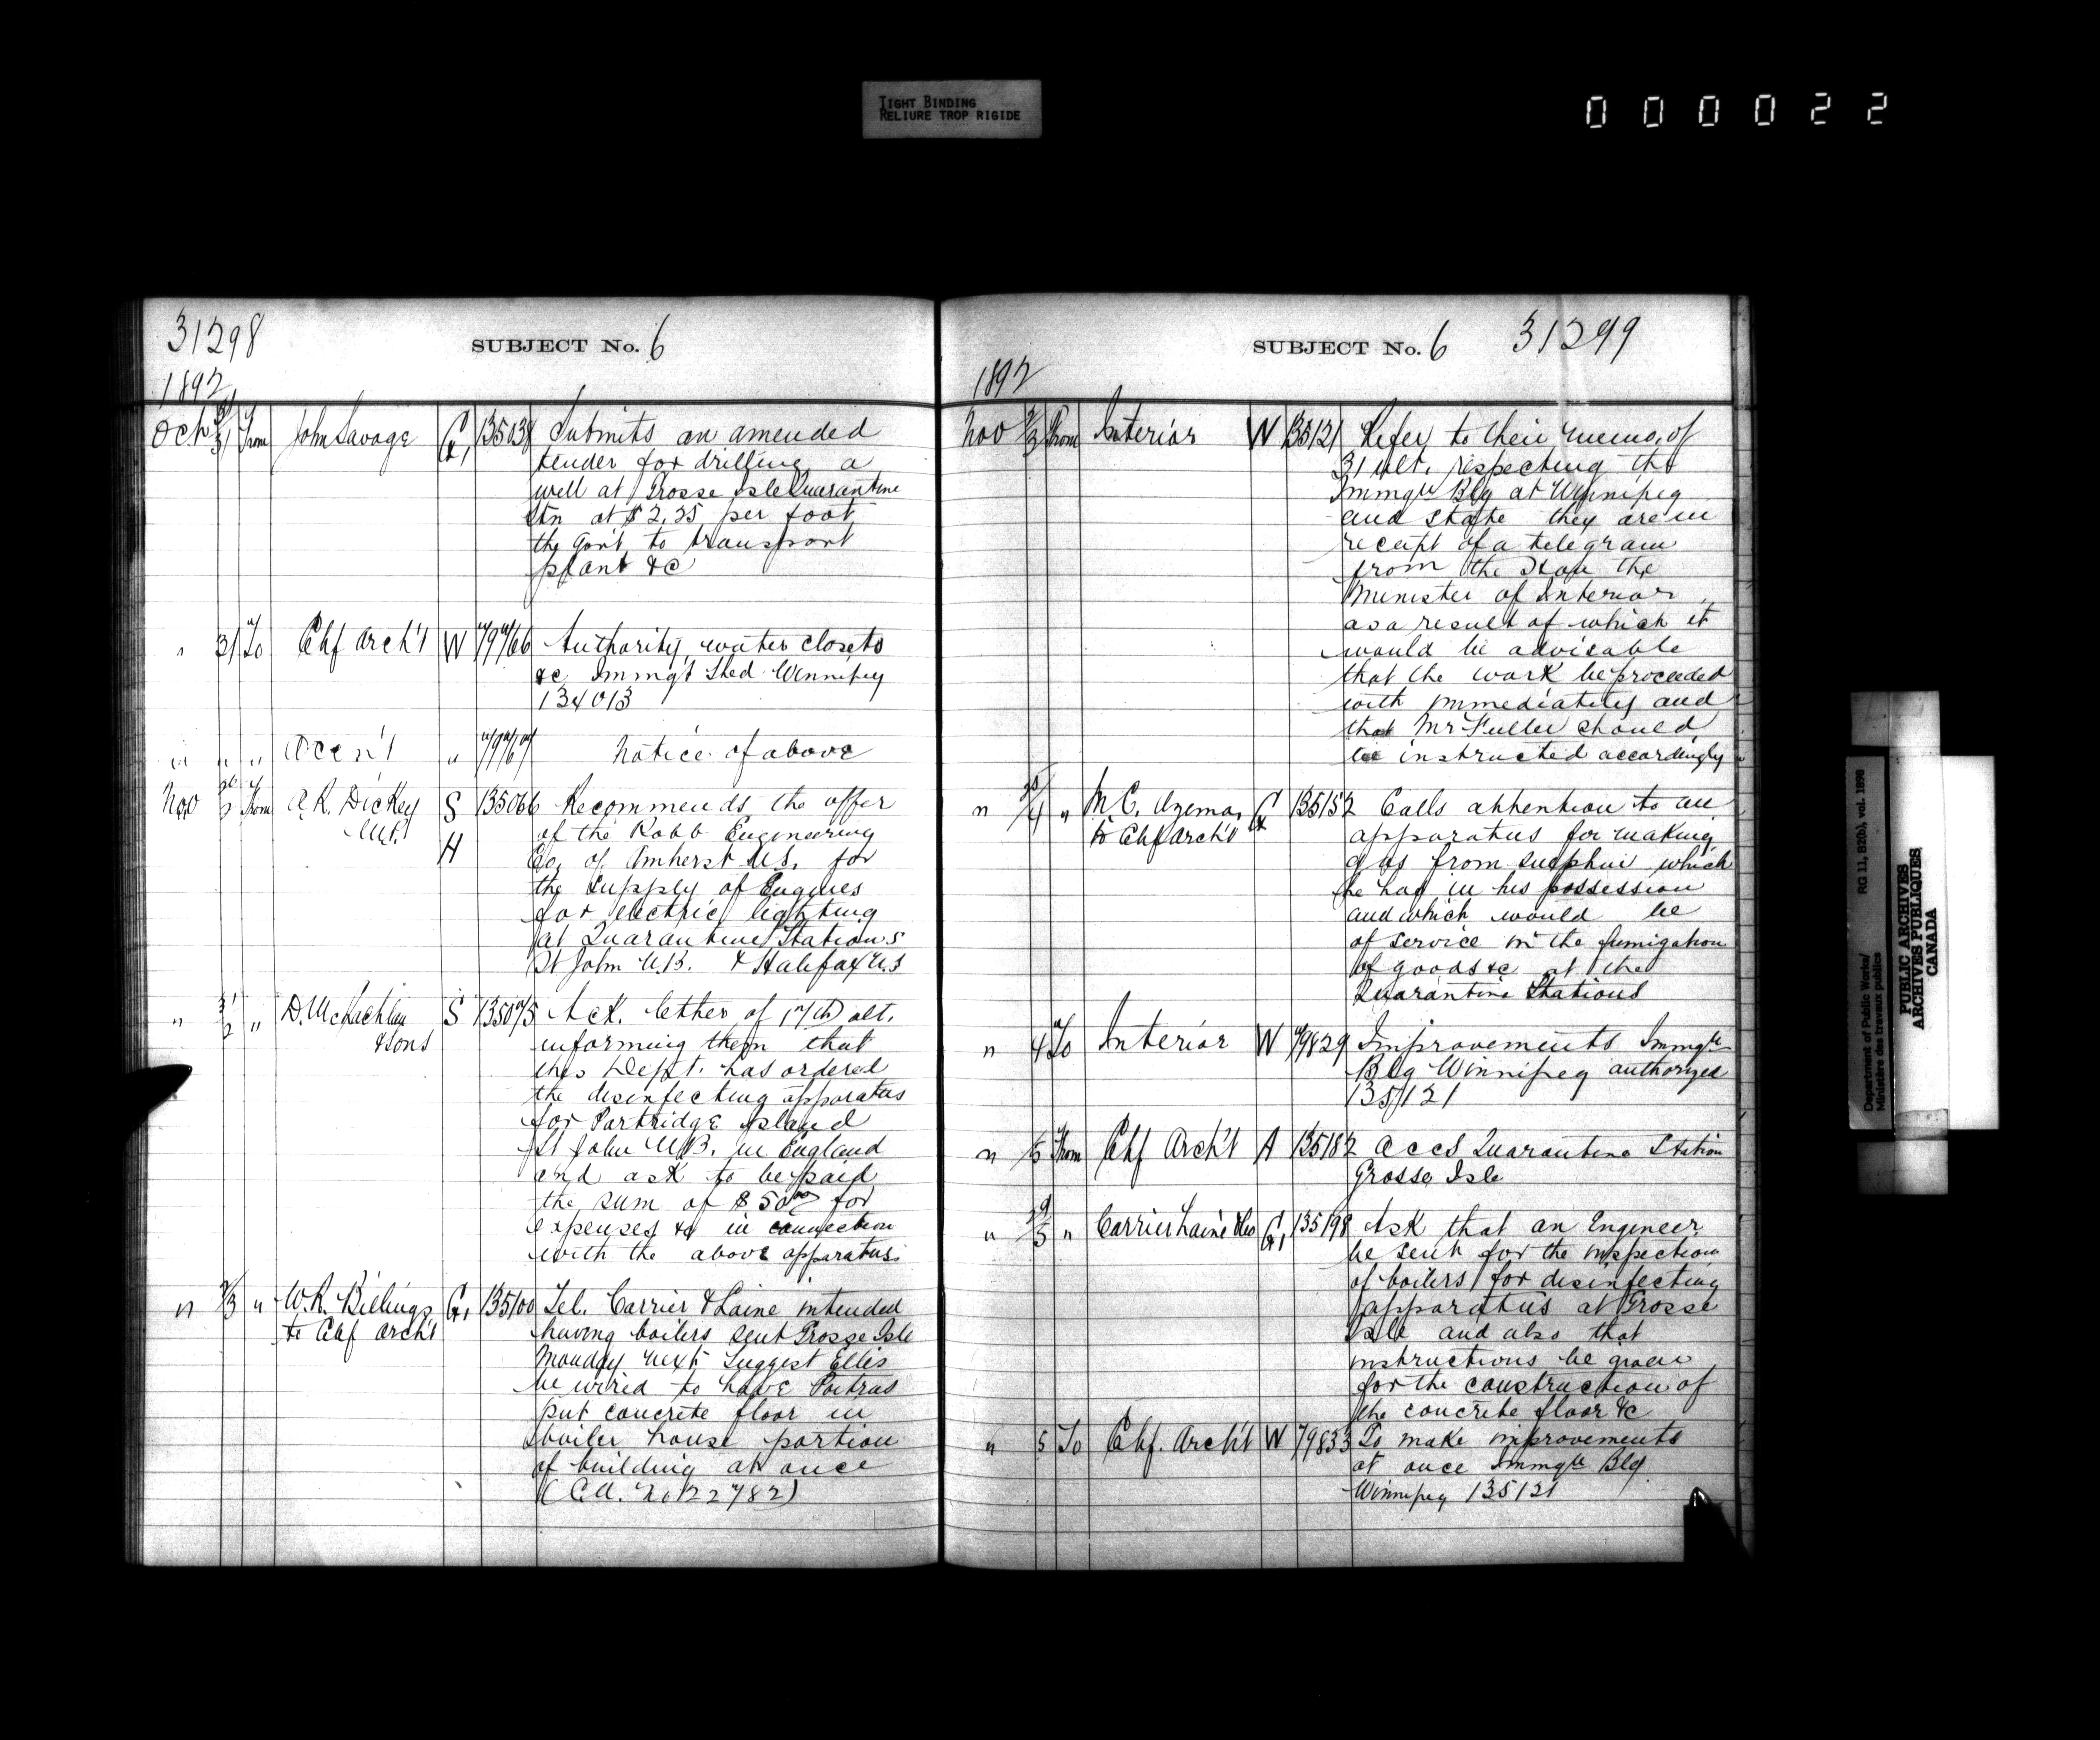 TIGHT BINDING
RELIURE TROP RIGIDE
000022
31298
SUBJECT No. 6
1892
Oct 31 From John Savage G. Submits an amended
tender for drilling a
well at Grosse Isle Quarantine
Stn at $2.25 per foot
the Gov't to transport
plant &c
" 31 To Chf Arch't W 79766 Authority, water closets
&c Immgt Shed Winnipeg
134013
" " " Acc'n't " 79767 Notice of above
Nov From A. R. Dickey S 135066 Recommends the offer
H of the Robb Engineering
Co. of Amherst N.S. for
the supply of Engines
for electric lighting
at Quarantine Stations
St John N.B. & Halifax N.S
" 31/2 " D. McLachlan S 135075 Ack. letter of 17th ult.
& Sons informing them that
this Dept. has ordered
the disinfecting apparatus
for Partridge Island
St John N.B. in England
and ask to be paid
the sum of $50.00 for
expenses &c in connection
with the above apparatus.
" " W. R. Billings G. 135100 Tel. Carrier & Laine intended
to Chf Arch't having boilers sent Grosse Isle
Monday next Suggest Ellis
be wired to have Poitras
put concrete floor in
boiler house portion
of building at once
(C.A. No 22782)
SUBJECT No. 6 31299
1892
Nov From Interior W 135121 Refer to their memo. of
31 ult. respecting the
Immgt'n Blg at Winnipeg
and state they are in
receipt of a telegram
from the Hon the
Minister of Interior
as a result of which it
would be advisable
that the work be proceeded
with immediately and
that Mr Fuller should
be instructed accordingly
" " M. C. Ozema, G 135152 Calls attention to an
to Chf Arch't apparatus for making
gas from sulphur which
he has in his possession
and which would be
of service in the fumigation
of goods &c at the
Quarantine Stations
" 4 To Interior W 79829 Improvements Immgt'n
Blg Winnipeg authorized
135121
" 5 From Chf Arch't A 135182 Accs Quarantine Station
Grosse Isle
" " Carrier Laine & Co G. 135198 Ask that an Engineer
be sent for the inspection
of boilers for disinfecting
apparatus at Grosse
Isle and also that
instructions be given
for the construction of
the concrete floor &c
" 5 To Chf. Arch't W 79833 To make improvements
at once Immgt'n Blg
Winnipeg 135121
Department of Public Works/ RG 11, B2(b), vol. 1898
Ministère des travaux publics
PUBLIC ARCHIVES
ARCHIVES PUBLIQUES
CANADA